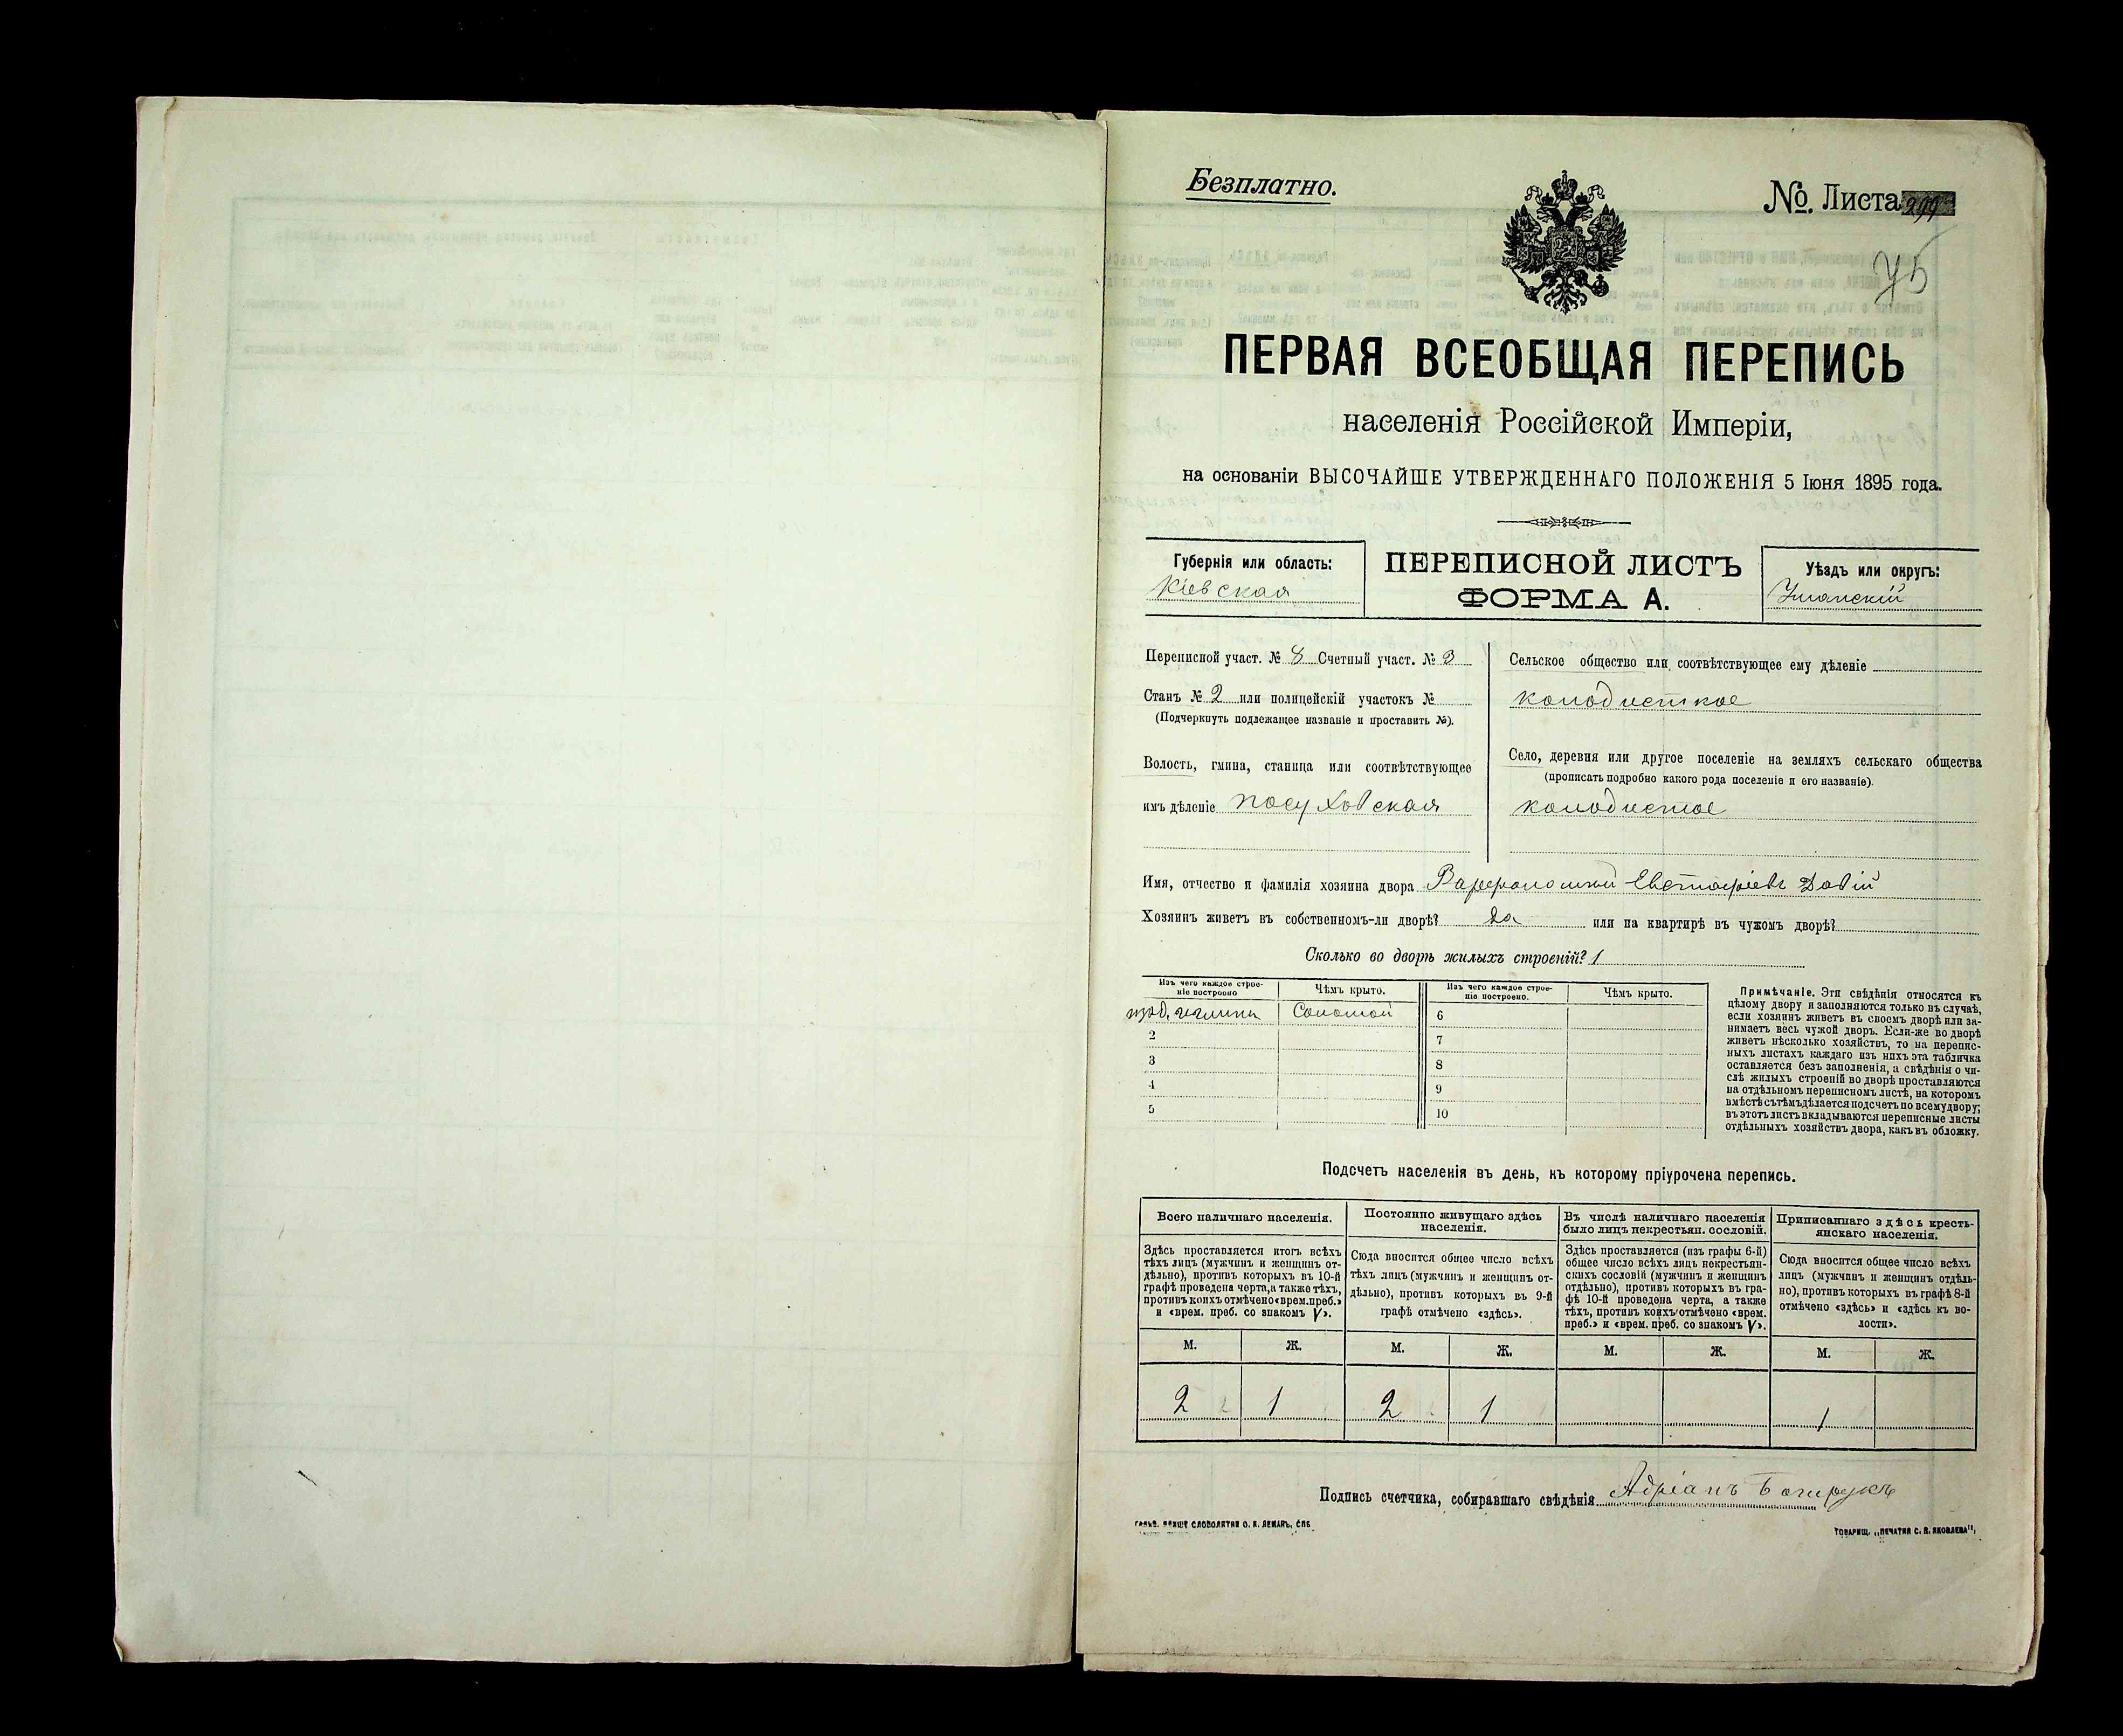 Безплатно.
№ Листа
75
ПЕРВАЯ ВСЕОБЩАЯ ПЕРЕПИСЬ
населенія Россійской Имперіи,
на основаніи ВЫСОЧАЙШЕ УТВЕРЖДЕННАГО ПОЛОЖЕНІЯ 5 Іюня 1895 года.
Губернія или область:
Кіевская
ПЕРЕПИСНОЙ ЛИСТЪ
ФОРМА А.
Уѣздъ или округъ:
Уманскій
Переписной участ. № 8 Счетный участ. № 3
Станъ № 2 или полицейскій участокъ №
(Подчеркнуть подлежащее названіе и проставить №).
Волость, гмина, станица или соотвѣтствующее
имъ дѣленіе посуховская
Сельское общество или соотвѣтствующее ему дѣленіе
колодисткое
Село, деревня или другое поселеніе на земляхъ сельскаго общества
(прописать подробно какого рода поселеніе и его названіе).
колодистое
Имя, отчество и фамилія хозяина двора Варфоломій Евстафіевъ Довій
Хозяинъ живетъ въ собственномъ-ли дворѣ? Да или на квартирѣ въ чужомъ дворѣ?
Сколько во дворѣ жилыхъ строеній? 1
Изъ чего каждое строе-
ніе построено
Чѣмъ крыто.
Изъ чего каждое строе-
ніе построено.
Чѣмъ крыто.
глины Соломой
2
3
4
5
6
7
8
9
10
Примѣчаніе. Эти свѣдѣнія относятся къ
цѣлому двору и заполняются только въ случаѣ,
если хозяинъ живетъ въ своемъ дворѣ или за-
нимаетъ весь чужой дворъ. Если-же во дворѣ
живетъ нѣсколько хозяйствъ, то на перепис-
ныхъ листахъ каждаго изъ нихъ эта табличка
оставляется безъ заполненія, а свѣдѣнія о чи-
слѣ жилыхъ строеній во дворѣ проставляются
на отдѣльномъ переписномъ листѣ, на которомъ
вмѣстѣ съ тѣмъ дѣлается подсчетъ по всему двору;
въ этотъ листъ вкладываются переписные листы
отдѣльныхъ хозяйствъ двора, какъ въ обложку.
Подсчетъ населенія въ день, къ которому пріурочена перепись.
Всего наличнаго населенія.
Здѣсь проставляется итогъ всѣхъ
тѣхъ лицъ (мужчинъ и женщинъ от-
дѣльно), противъ которыхъ въ 10-й
графѣ проведена черта, а также тѣхъ,
противъ коихъ отмѣчено «врем. преб.»
и «врем. преб. со знакомъ V».
Постоянно живущаго здѣсь
населенія.
Сюда вносится общее число всѣхъ
тѣхъ лицъ (мужчинъ и женщинъ от-
дѣльно), противъ которыхъ въ 9-й
графѣ отмѣчено «здѣсь».
Въ числѣ наличнаго населенія
было лицъ некрестьян. сословій.
Здѣсь проставляется (изъ графы 6-й)
общее число всѣхъ лицъ некрестьян-
скихъ сословій (мужчинъ и женщинъ
отдѣльно), противъ которыхъ въ гра-
фѣ 10-й проведена черта, а также
тѣхъ, противъ коихъ отмѣчено «врем.
преб.» и «врем. преб. со знакомъ V».
Приписаннаго здѣсь кресть-
янскаго населенія.
Сюда вносится общее число всѣхъ
лицъ (мужчинъ и женщинъ отдѣль-
но), противъ которыхъ въ графѣ 8-й
отмѣчено «здѣсь» и «здѣсь къ во-
лости».
М. Ж. М. Ж. М. Ж. М. Ж.
2 1 2 1 1
Подпись счетчика, собиравшаго свѣдѣнія Адріанъ
СЛОВОЛИТНИ О. И. ЛЕМАНЪ, СПБ
ТОВАРИЩ. „ПЕЧАТНЯ С. П. ЯКОВЛЕВА",